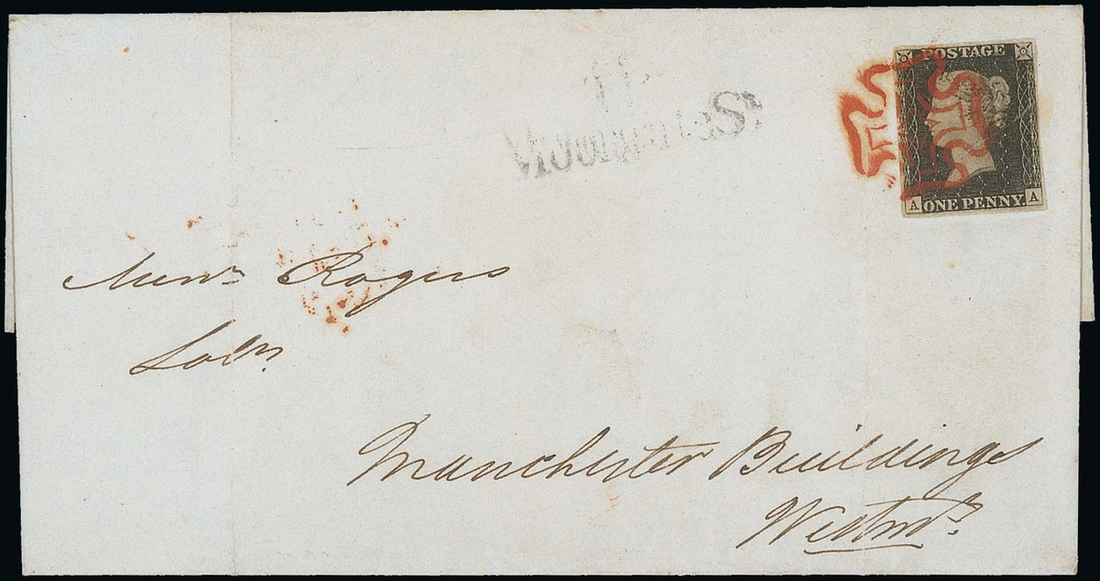 POSTAGE
A ONE PENNY. A
Moorgate St
Messrs Rogers
Solrs
Manchester Buildings
Westmr